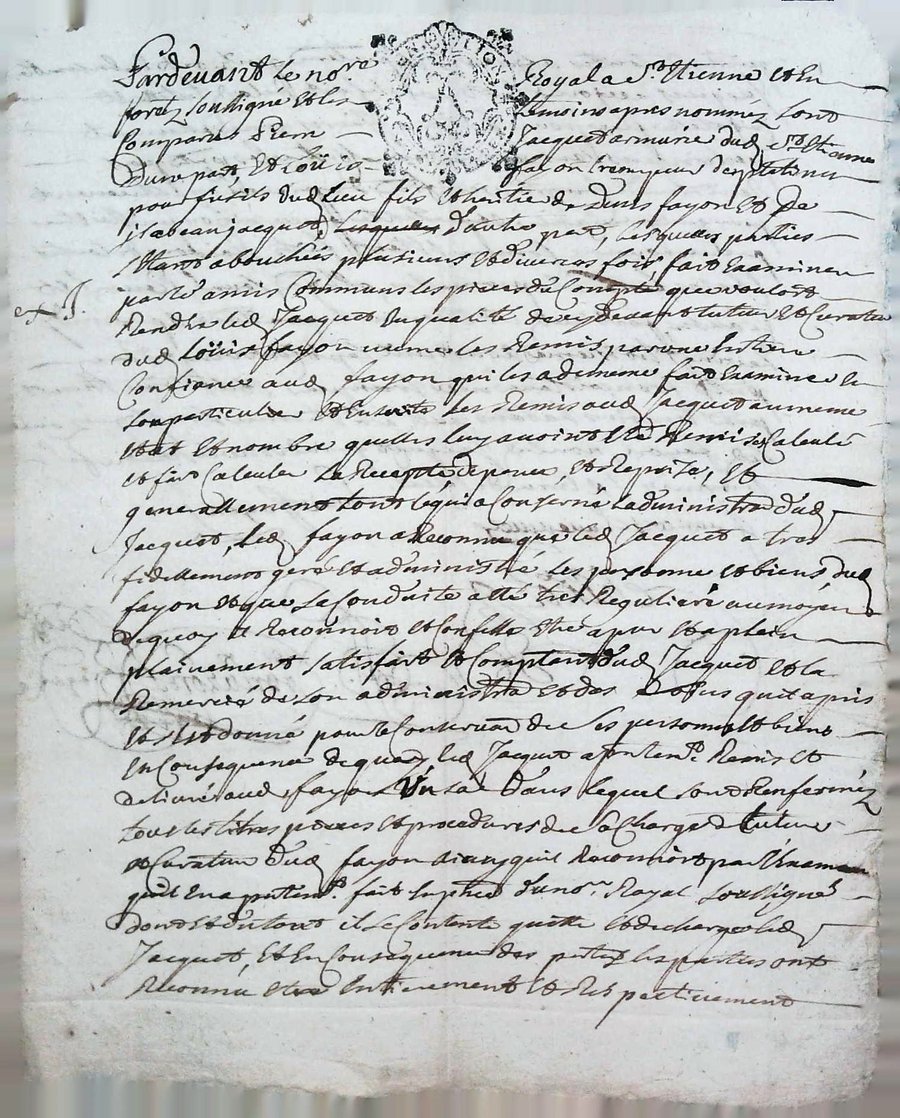 Pardevant le no.re Royal a St. Etienne et En
forez soussigné et les temoins apres nommez sont
Comparus Pierre Jacquet armurier dud. St. Etienne
Dune part, Et Loüis fayon trempeur de platines
pour fusils dud lieu fils et heritier de Denis fayon et de
jsabeau jacquet, d'autre part, Lesquelles parties
Etant abouchées plusieurs et diverses fois, fait Examiner
par le amis Communs les pieces du Compte que vouloit
Rendre led Jacquet En qualité de cydevant tuteur Et Curateur
dud Loüis fayon meme les Remis par une Entiere
Confiance aud fayon qui les a de meme fait Examiner En
son particulier Et Ensuite les Remis aud Jacquet au meme
Etat et nombre quelles luy avoint Eté Remises Calculé
et fait Calculer la Recepte depence, et Reprise, Et
generallement tout ce qui a Conserné L'administra.on dud
Jacquet, Led fayon a Reconnu que led Jacquet a tres
fidellement geré et administré les personne et biens dud
fayon et que sa Conduite a Eté tres Reguliere au moyen
de quoy il Reconnoit et Confesse Etre a pur et a plein
plainement satisfait et Comptant dud Jacquet et la
Remercié de son administra.on et des soins quil a pris
et sest donné pour la Conserva.on de ses personne et biens
En Consequence de quoy led Jacquet a presentem.t Remis Et
Delivré aud fayon Un sac dans lequel sont Renfermez
tous les titres pieces et procedures de sa Charge de tuteur
et Curateur dud fayon ainsy quil Reconnoit par l'Examen
quil En a presentem.t fait En presence dud no.re Royal soussigné
dont et du tout il se Contente quitte et decharge led
Jacquet, Et En Consequence des presentes les parties ont
Reconnu Etre Entierement et Respectivement